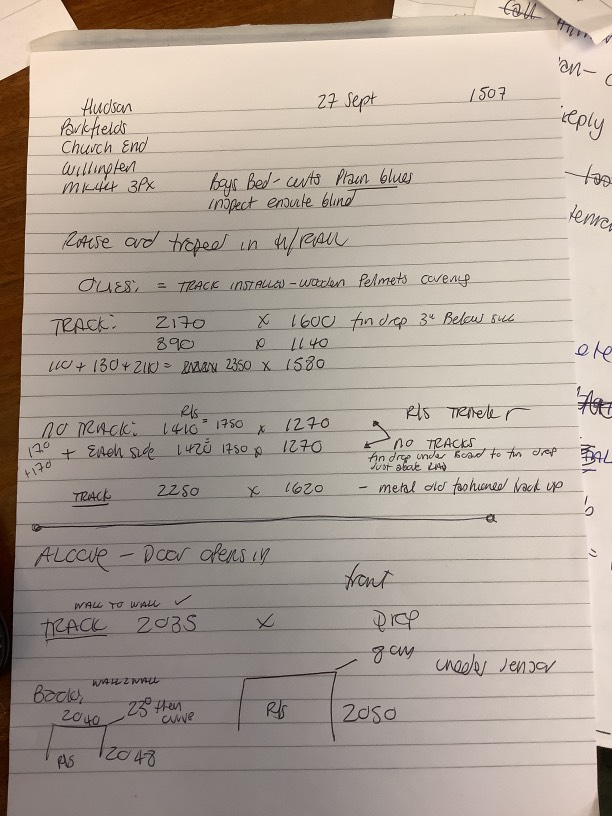 Call
Hudson 27 Sept 1507
Parkfields
Church End
Willington
MK44 3PX Boys Bed - curts Plain blues
inspect ensuite blind
reply
RAISE and
TRACK INSTALLED - wooden Pelmets covering
TRACK: 2170 x 1600 fin drop 3" Below sill
890 x 1140
110 + 130 + 2110 = 2350 x 1580
R/S R/S
NO TRACK: 1410 = 1750 x 1270
170 + EACH side 1420 = 1750 x 1270 NO TRACKS
+170 fin drop under Board to fin drop
Just above RAD
TRACK 2250 x 1620 - metal old fashioned track up
ALCOVE - Door opens in
front
WALL TO WALL ✓
TRACK 2035 x Drop
under sensor
Back, WALL 2 WALL
2040 23° then
curve
R/S 2050
R/S 2048